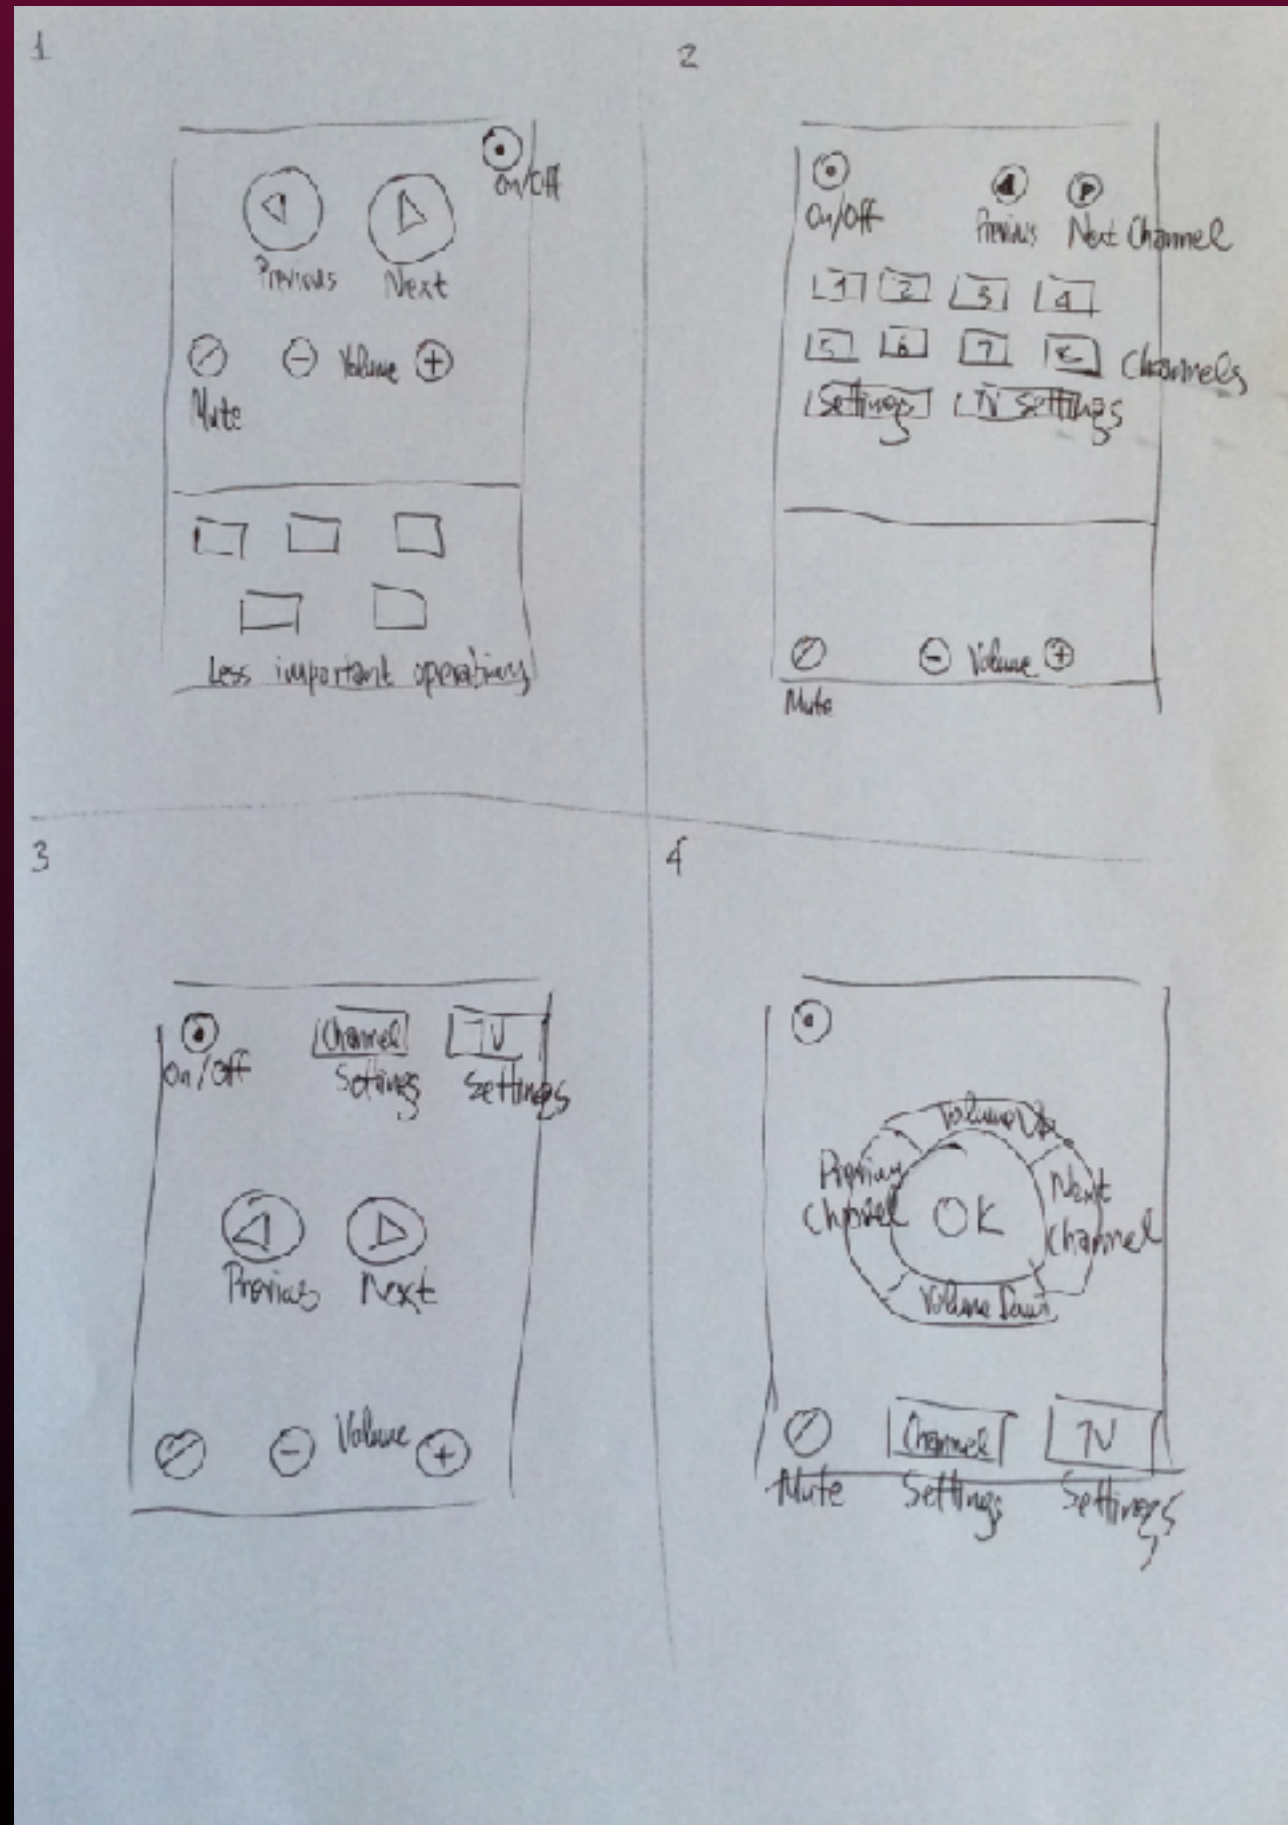 1
On/Off
Previous Next
Volume
Mute
Less important operations
2
On/Off Previous Next Channel
1 2 3 4
5 6 7 8 Channels
Settings TV Settings
Volume
Mute
3
Channel TV
On/Off Settings Settings
Previous Next
Volume
4
Volume Up
Previous Channel
OK
Next Channel
Volume Down
Channel TV
Mute Settings Settings